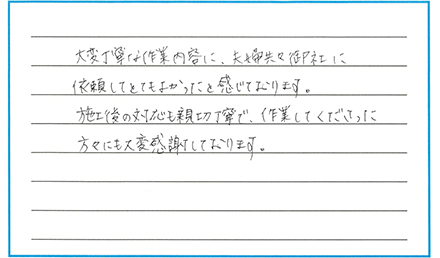 大変丁寧な作業内容に、夫婦共々御社に
依頼してとてもよかったと感じております。
施工後の対応も親切丁寧で、作業してくださった
方々にも大変感謝しております。